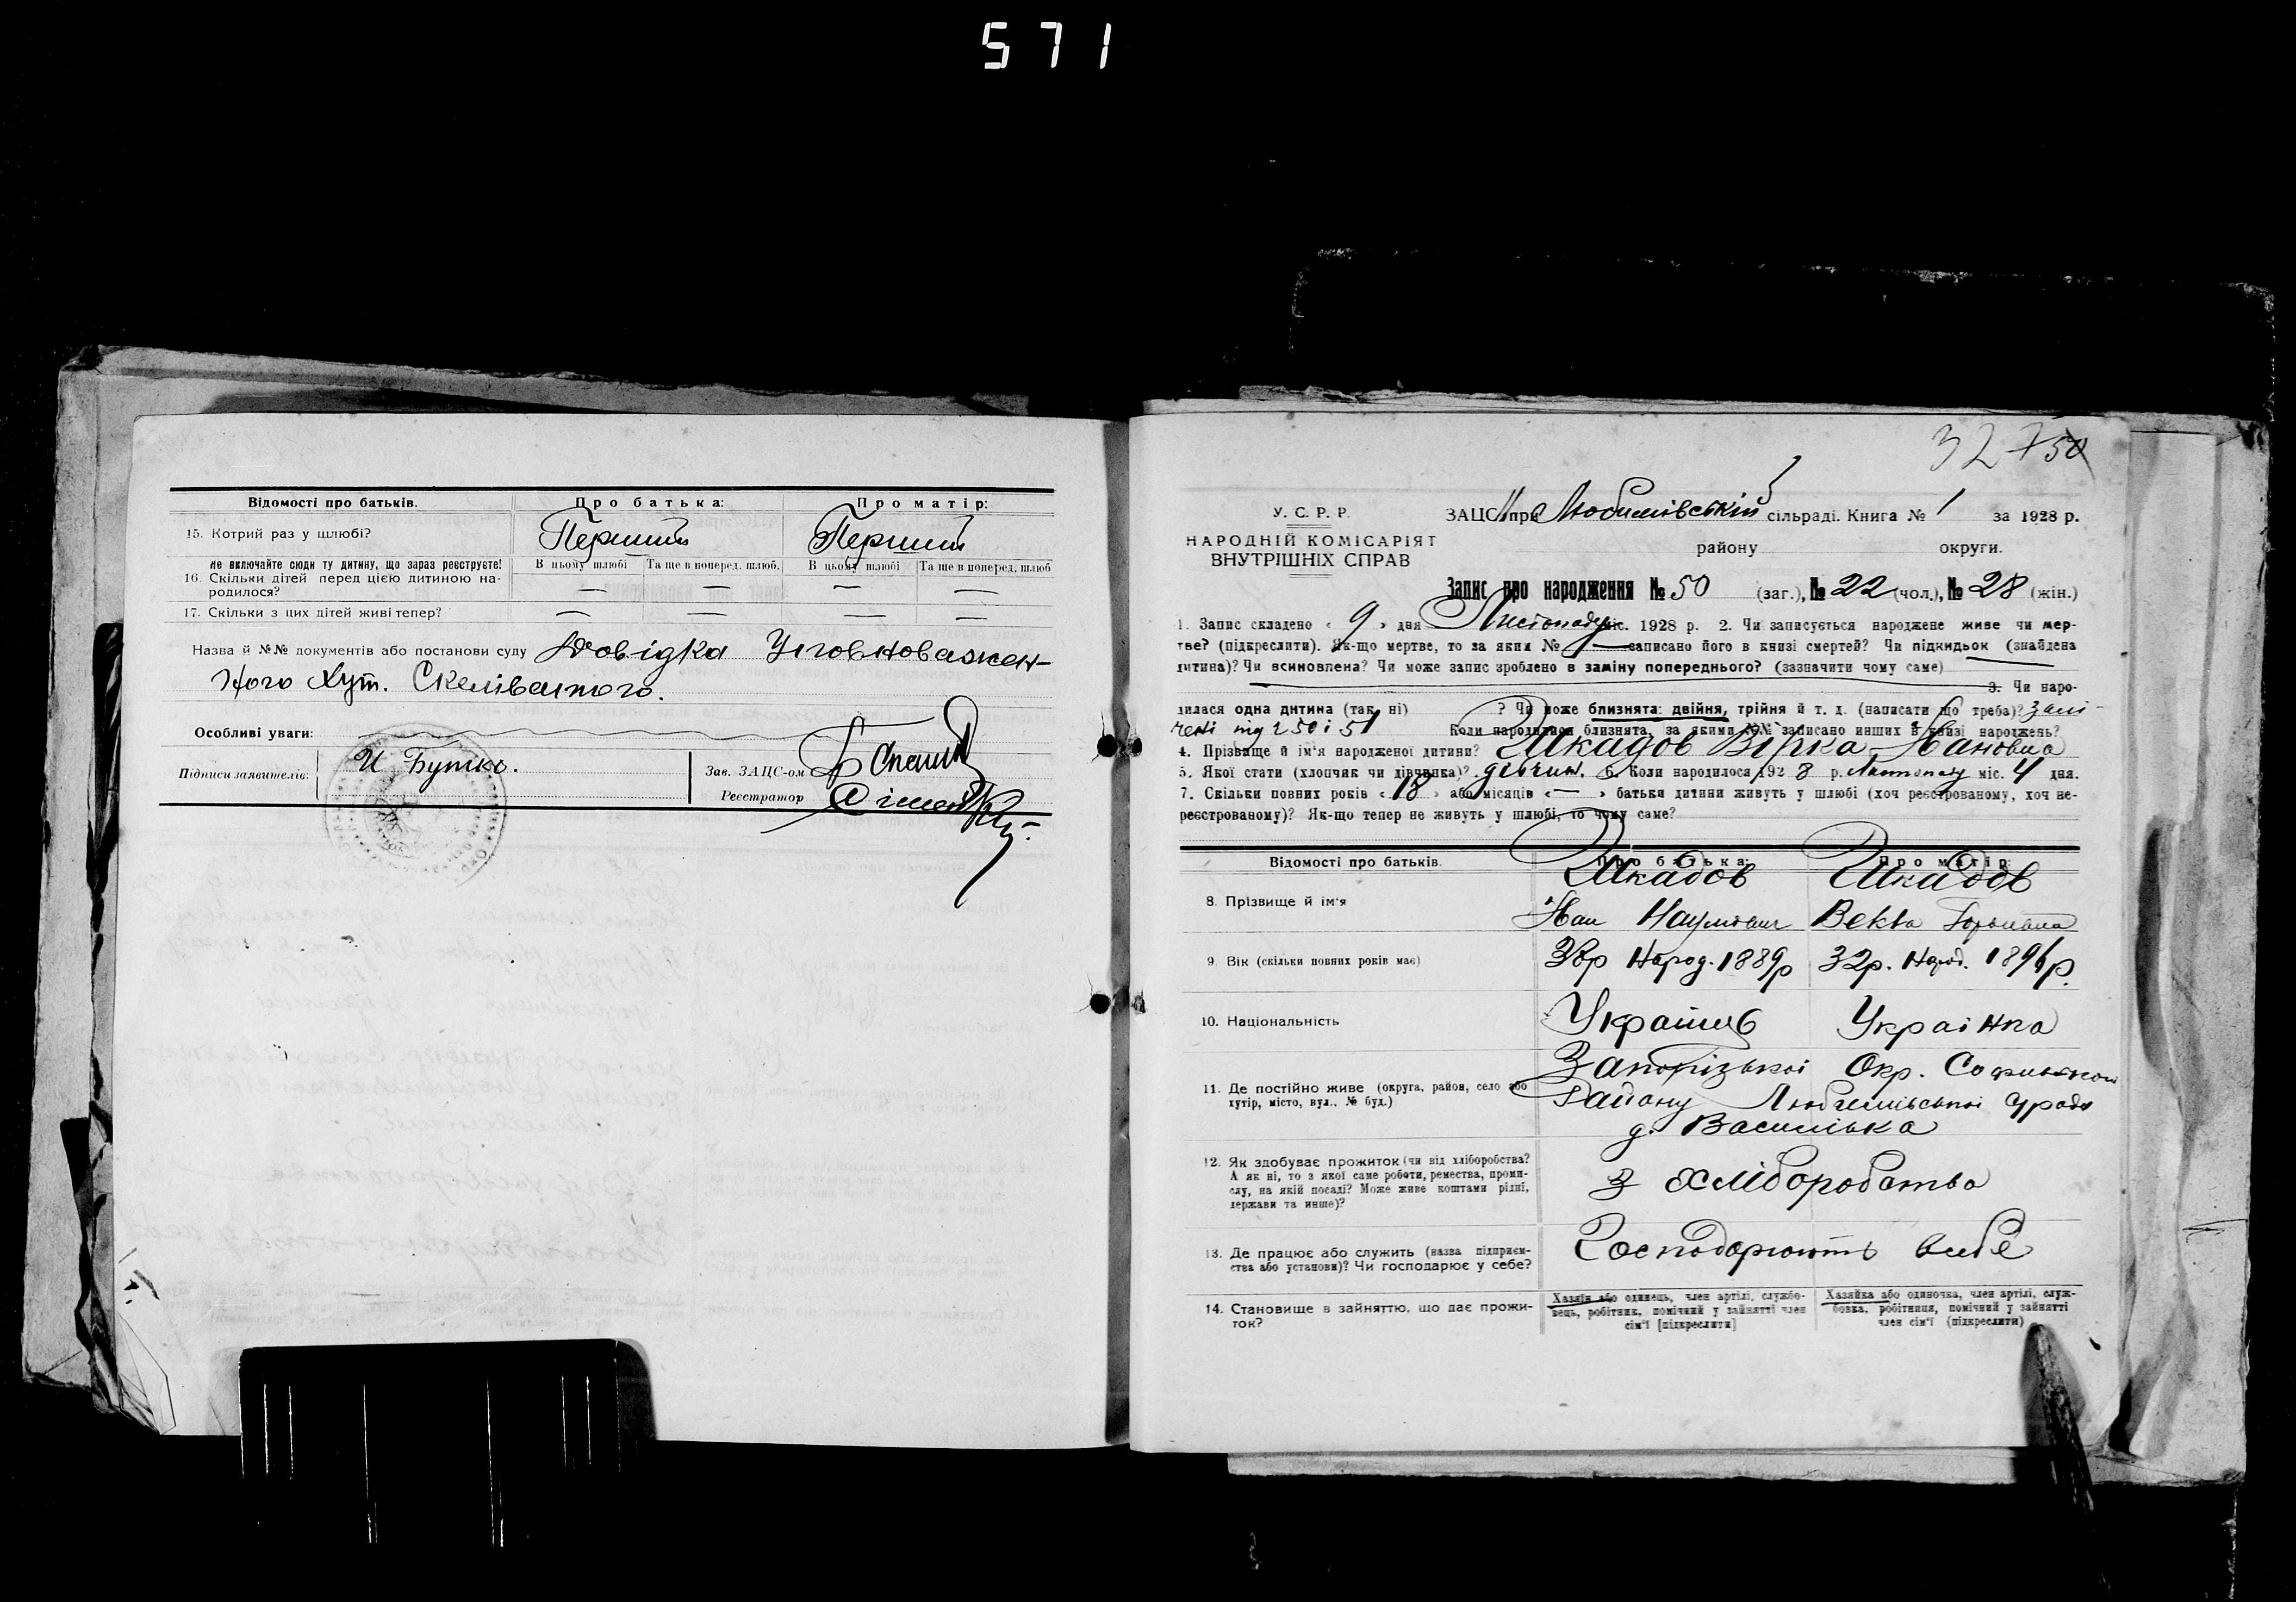 571
Відомості про батьків. Про батька: Про матір:
15. Котрий раз у шлюбі? Перший Перший
не включайте сюди ту дитину, що зараз реєструєте! В цьому шлюбі Та ще в поперед. шлюб. В цьому шлюбі Та ще в поперед. шлюб
16. Скільки дітей перед цією дитиною на-
родилося? — — — —
17. Скільки з цих дітей живі тепер? — — — —
Назва й №№ документів або постанови суду Довідка Уповноважен-
ного Хут. Скелюватого.
Особливі уваги:
Підписи заявителів: И Бутко. Зав. ЗАЦС-ом
Реєстратор
32 750
У. С. Р. Р. ЗАЦС при Любимівській сільраді. Книга № 1 за 1928 р.
НАРОДНІЙ КОМІСАРІЯТ
ВНУТРІШНІХ СПРАВ
району округи.
Запис про народження № 50 (заг.), № 22 (чол.), № 28 (жін.)
1. Запис складено « 9 » дня Листопаду міс. 1928 р. 2. Чи записується народжене живе чи мер-
тве? (підкреслити). Як-що мертве, то за яким № — записано його в книзі смертей? Чи підкидьок (знайдена
дитина)? Чи всиновлена? Чи може запис зроблено в заміну попереднього? (зазначити чому саме)
3. Чи наро-
дилася одна дитина (так, ні) ? Чи може близнята: двійня, трійня й т. д. (написати що треба)? запі-
під 50 і 51 Коли народилися близнята, за якими №№ записано инших в книзі народжень?
4. Прізвище й ім'я народженої дитини? Шкадов Вірка Івановна
5. Якої стати (хлопчик чи дівчинка)? дівчин. 6. Коли народилося 1928 р. Листопаду міс. 4 дня.
7. Скільки повних років « 18 » або місяців « — » батьки дитини живуть у шлюбі (хоч реєстрованому, хоч не-
реєстрованому)? Як-що тепер не живуть у шлюбі, то чому саме?
Відомості про батьків. Про батька: Про матір:
Шкадов Шкадов
8. Прізвище й ім'я
Іван Наумович Векла
9. Вік (скільки повних років має) 38р Народ. 1889р 32р. Народ. 1896р.
10. Національність Українець Українка
Запорізької Окр. Софиївської
11. Де постійно живе (округа, район, село або
хутір, місто, вул., № буд.) Району Любимівської с/ради
д. Васильівка
12. Як здобуває прожиток (чи від хліборобства?
А як ні, то з якої саме роботи, ремества, проми-
слу, на якій посаді? Може живе коштами рідні,
держави та инше)? З хліборобства
13. Де працює або служить (назва підприєм-
ства або установи)? Чи господарює у себе? Господорюють в себе
14. Становище в зайняттю, що дає прожи-
ток?
Хазяїн або одинець, член артілі, службо-
вець, робітник, помічний у зайнятті член
сім'ї [підкреслити]
Хазяйка або одиночка, член артілі, служ-
бовка, робітниця, помічний у зайнятті
член сім'ї (підкреслити)